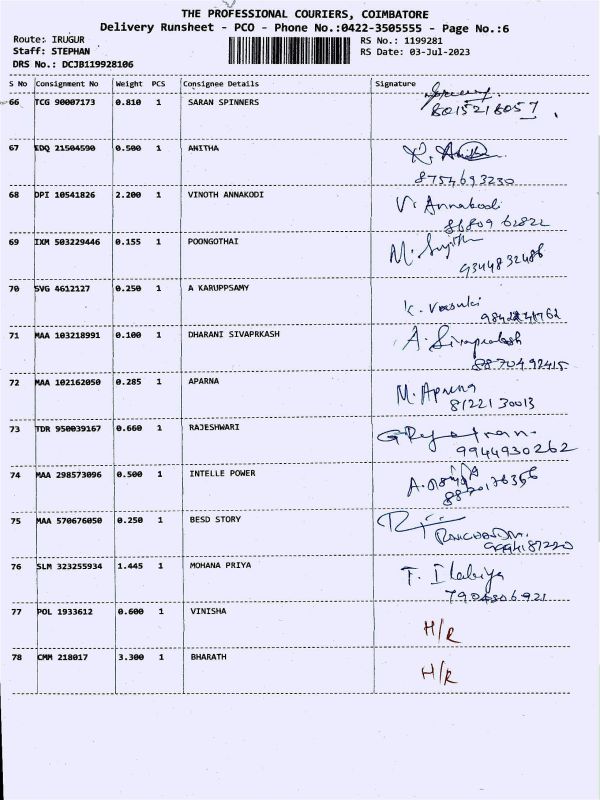 THE PROFESSIONAL COURIERS, COIMBATORE
Delivery Runsheet - PCO - Phone No.:0422-3505555 - Page No.:6
Route: IRUGUR RS No.: 1199281
Staff: STEPHAN RS Date: 03-Jul-2023
DRS No.: DCJB119928106
S No Consignment No Weight PCS Consignee Details Signature
66 TCG 90007173 0.810 1 SARAN SPINNERS
8015218057
67 EDQ 21504590 0.500 1 ANITHA
8754693230
68 DPI 10541826 2.200 1 VINOTH ANNAKODI V. Annakodi
86809 62822
69 IXM 503229446 0.155 1 POONGOTHAI M. Sujith
9344832486
70 SVG 4612127 0.250 1 A KARUPPSAMY
K. Vasuki
71 MAA 103218991 0.100 1 DHARANI SIVAPRKASH A. Sivaprakash
8870492415
72 MAA 102162050 0.285 1 APARNA M. Aparna
81221 30013
73 TDR 950039167 0.660 1 RAJESHWARI
9944930262
74 MAA 298573096 0.500 1 INTELLE POWER
75 MAA 570676050 0.250 1 BESD STORY
9994187220
76 SLM 323255934 1.445 1 MOHANA PRIYA F. Ilakiya
7904306921
77 POL 1933612 0.600 1 VINISHA
H/R
78 CMM 218017 3.300 1 BHARATH
H/R